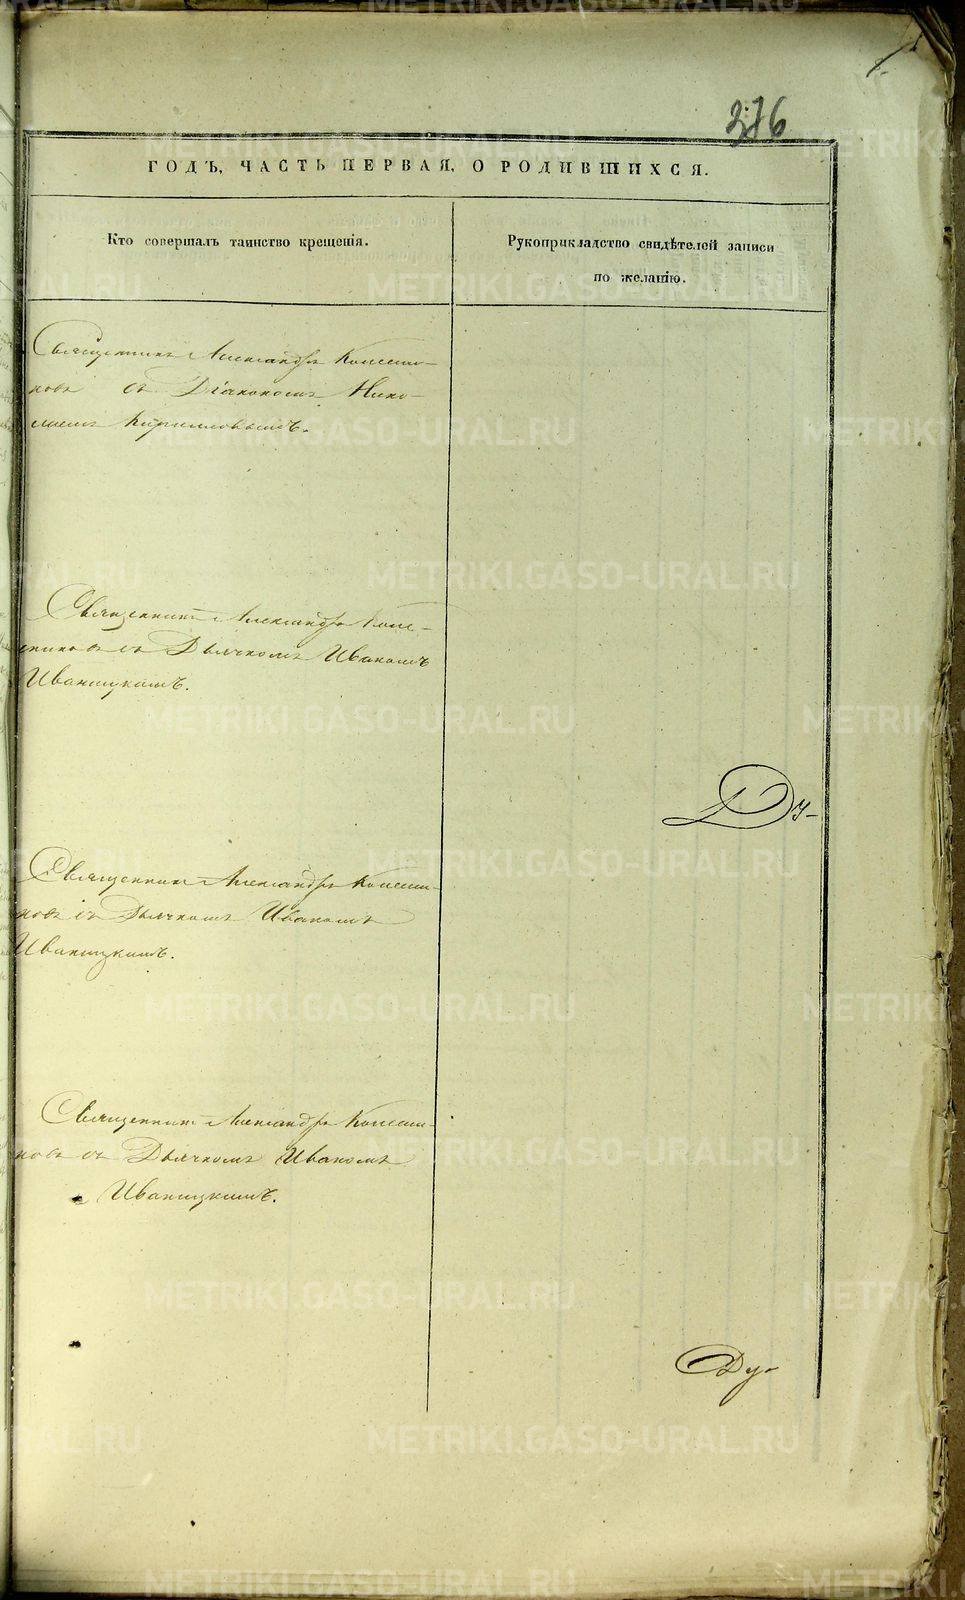 376
ГОДЪ, ЧАСТЬ ПЕРВАЯ, О РОДИВШИХСЯ.
Кто совершалъ таинство крещенія.
Рукоприкладство свидѣтелей записи
по желанію.
Священникъ Александръ
съ Діакономъ Нико-
лаемъ Кирилловымъ.
Священникъ Александръ
съ Дьячкомъ Иваномъ
Иваницкимъ.
Ду-
Священникъ Александръ
съ Дьячкомъ Иваномъ
Иваницкимъ.
Священникъ Александръ
съ Дьячкомъ Иваномъ
Иваницкимъ.
Ду-
METRIKI.GASO-URAL.RU